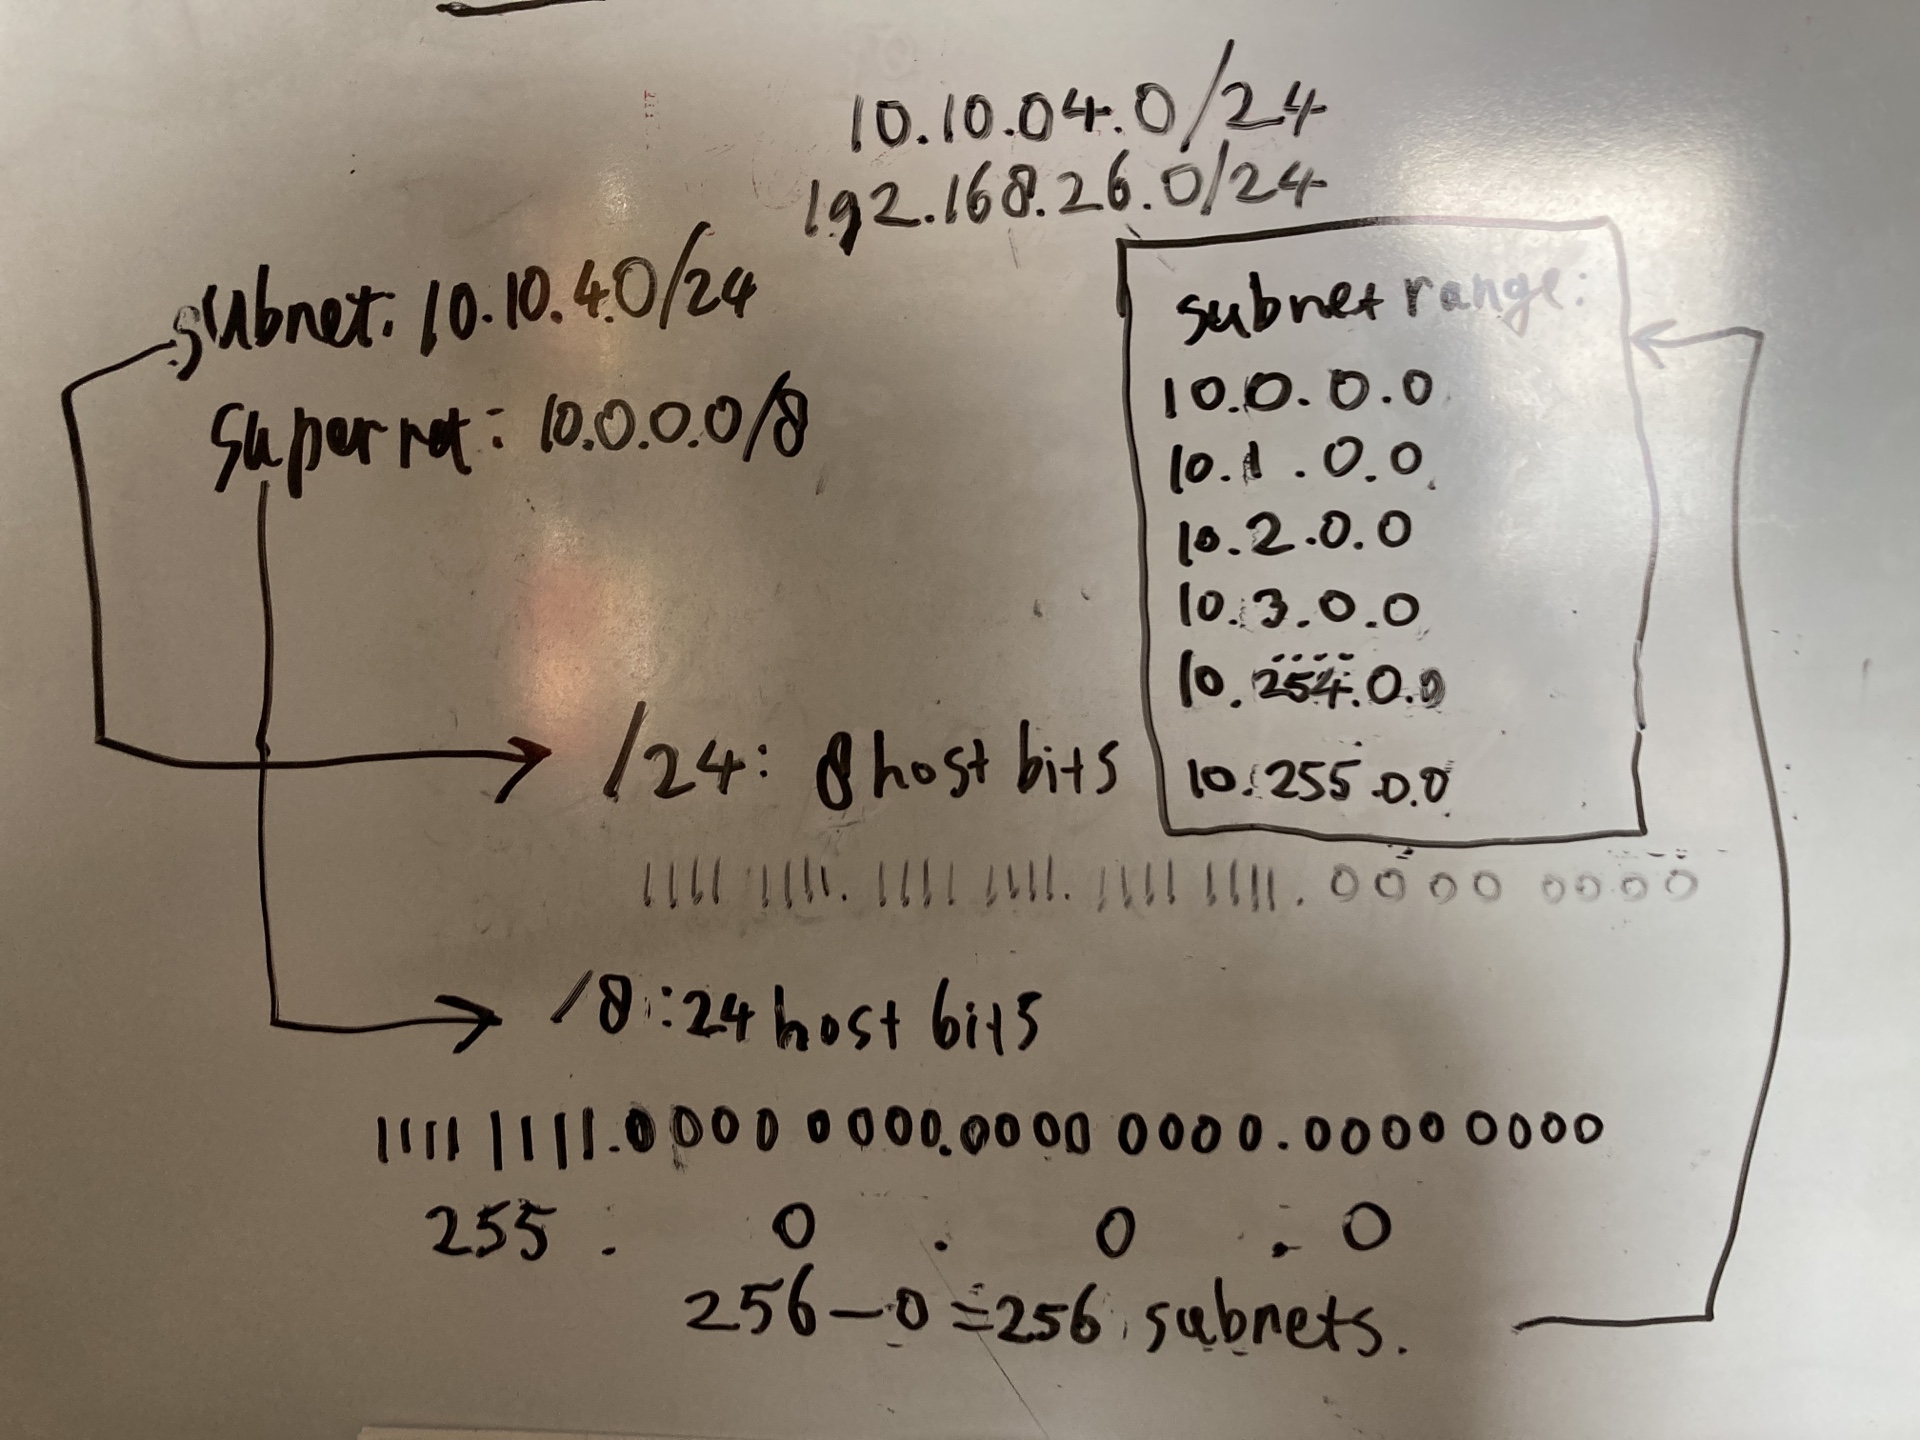 10.10.04.0/24
192.168.26.0/24
subnet: 10.10.4.0/24
supernet: 10.0.0.0/8
subnet range:
10.0.0.0
10.1.0.0
10.2.0.0
10.3.0.0
10.254.0.0
10.255.0.0
/24: 8 host bits
1111 1111. 1111 1111. 1111 1111. 0000 0000
/8: 24 host bits
1111 1111.0000 0000.0000 0000.0000 0000
255 . 0 . 0 . 0
256-0=256 subnets.